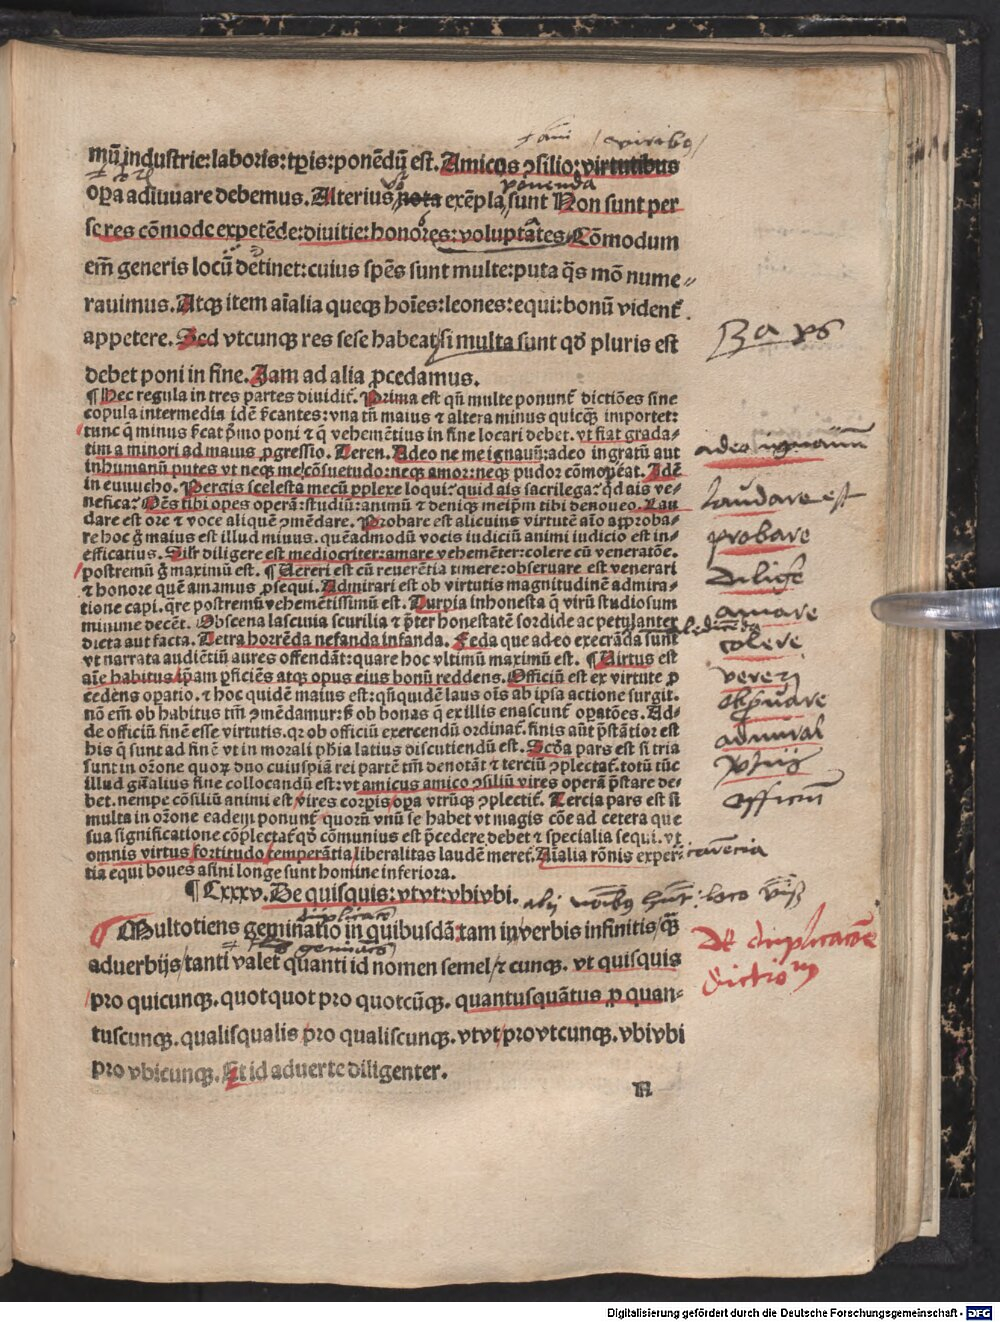 mū industrie: laboris: tꝑis: ponēdū est. Amicos ꝯsilio: virtutibus
oꝑa adiuuare debemus. Alterius nota exēpla sunt Non sunt per
se res cōmode expetēde: diuitie: honores: voluptates Cōmodum
em̄ generis locū detinet: cuius spēs sunt multe: puta q̄s mō nume-
rauimus. Atqꝫ item aīalia queqꝫ hoīes: leones: equi: bonū vident̄
appetere. Sed vtcunqꝫ res sese habeat si multa sunt qd̄ pluris est
debet poni in fine. Jam ad alia ꝓcedamus.
¶ Hec regula in tres partes diuidit̄. Prima est qn̄ multe ponunt̄ dictiōes sine
copula intermedia idē s̄cantes: vna tn̄ maius ⁊ altera minus quicqꝫ importet:
tunc q̄ minus s̄cat p̄mo poni ⁊ q̄ vehemētius in fine locari debet. vt fiat grada-
tim a minori ad maius ꝓgressio. Teren. Adeo ne me ignauū: adeo ingratū aut
inhumanū putes vt neqꝫ me cōsuetudo: neqꝫ amor: neqꝫ pudor cōmoueat. Idē
in eunucho. Pergis scelesta mecū ꝑplexe loqui: quid ais sacrilega: qd ais ve-
nefica: Oēs tibi opes operā: studiū: animū ⁊ deniqꝫ meip̄m tibi denoueo. Lau
dare est ore ⁊ voce aliquē ꝯmēdare. Probare est alicuius virtutē aīo approba-
re hoc g̊ maius est illud minus. quēadmodū vocis iudiciū animi iudicio est in-
efficatius. Sil̄r diligere est mediocriter: amare vehemēter: colere cū veneratōe.
postremū g̊ maximū est. ¶ Vereri est cū reuerētia timere: obseruare est venerari
⁊ honore quē amamus ꝓsequi. Admirari est ob virtutis magnitudinē admira-
tione capi. q̄re postremū vehemētissimū est. Turpia inhonesta q̄ virū studiosum
minime decēt. Obscena lasciuia scurilia ⁊ p̄ter honestatē sordide ac petulanter
dicta aut facta. Tetra horrēda nefanda infanda. Feda que adeo execrāda sunt
vt narrata audiētiū aures offendāt: quare hoc vltimū maximū est. ¶ Virtus est
aīe habitus ip̄am ꝑficiēs atqꝫ opus eius bonū reddens. Officiū est ex virtute ꝓ
cedēs oꝑatio. ⁊ hoc quidē maius est: qn̄quidē laus oīs ab ipsa actione surgit.
nō em̄ ob habitus tm̄ ꝯmēdamur: s̄ ob bonas q̄ ex illis enascunt̄ oꝑatōes. Ad-
de officiū finē esse virtutis. qr ob officiū exercendū ordinat̄. finis aūt p̄stātior est
his q̄ sunt ad finē vt in morali phīa latius discutiendū est. Scd̄a pars est si tria
sunt in orōne quoꝝ duo cuiuspiā rei partē tm̄ denotāt ⁊ terciū ꝯplectat̄. totū tūc
illud gn̄alius fine collocandū est: vt amicus amico ꝯsiliū vires operā p̄stare de-
bet. nempe cōsiliū animi est vires corꝑis oꝑa vtrūqꝫ ꝯplectit̄. Tercia pars est si
multa in orōne eadem ponunt̄ quorū vnū se habet vt magis cōe ad cetera que
sua significatione cōplectat̄ qd̄ cōmunius est p̄cedere debet ⁊ specialia sequi. vt
omnis virtus fortitudo temperātia liberalitas laudē meret̄. Aīalia rōnis exper-
tia equi boues asini longe sunt homine inferiora.
¶ Cxxxv. De quisquis: vtvt: vbivbi.
Multotiens geminatio in quibusdā tam in verbis infinitis qꝫ̄
aduerbijs tanti valet quanti id nomen semel ⁊ cunqꝫ. vt quisquis
pro quicunqꝫ. quotquot pro quotcūqꝫ. quantusquātus ꝓ quan-
tuscunqꝫ. qualisqualis pro qualiscunqꝫ. vtvt pro vtcunqꝫ. vbivbi
pro vbicunqꝫ. Et id aduerte diligenter.
ponenda
adeo ignauum
laudare est
probare
diligere
amare
colere
vereri
officium
De duplicatōe
dictionum
Digitalisierung gefördert durch die Deutsche Forschungsgemeinschaft - DFG